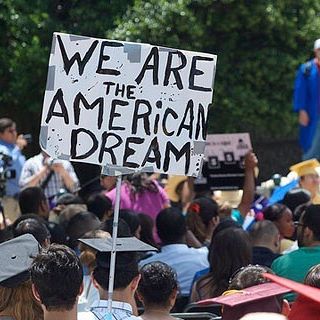 WE ARE
THE
AMERICAN
DREAM